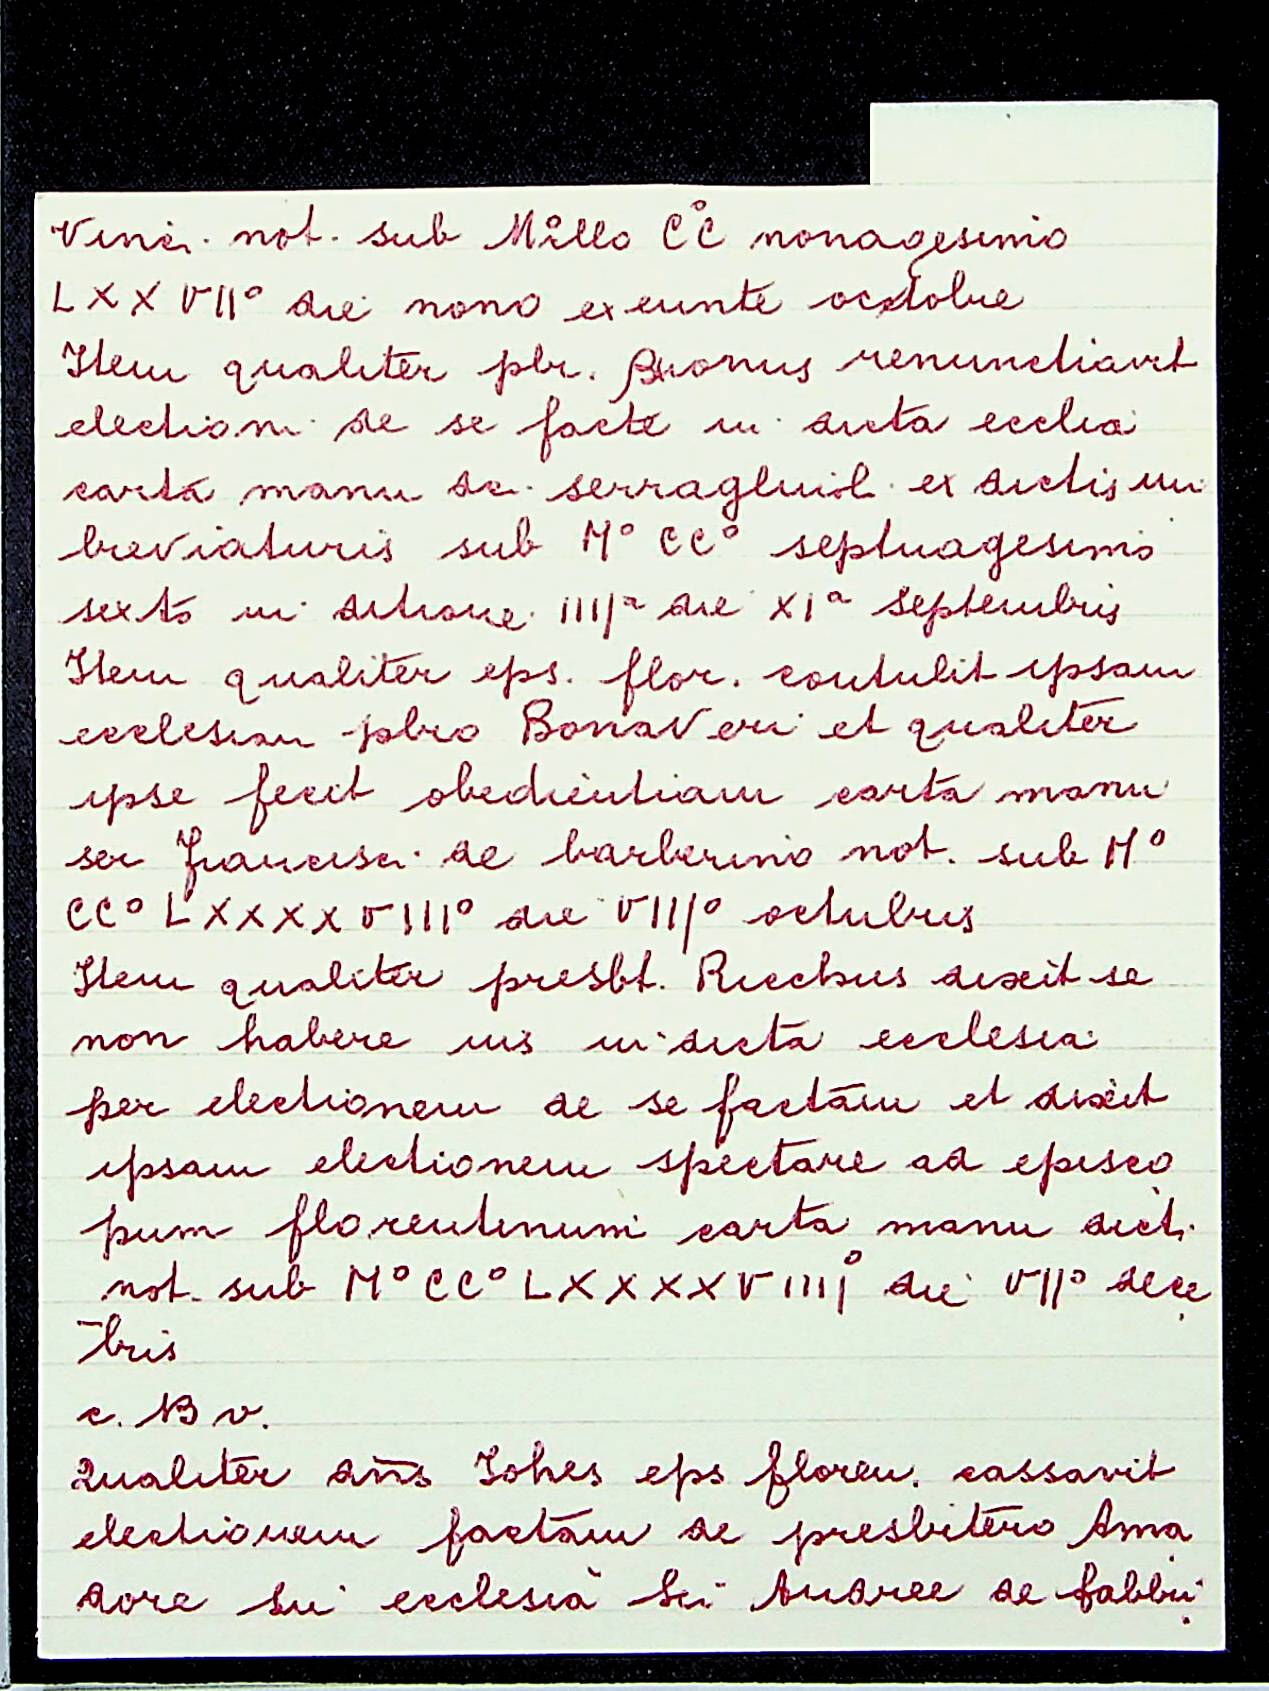 Vinci. not. sub Millo CC° nonagesimo
LXXVII° die nono exeunte octobre
Item qualiter pbr. Buonus renunctiavit
electioni de se facte in dicta ecclia
carta manu dci. serragluol ex dictis im
breviaturis sub M° CC° septuagesimo
sexto in ditione IIIIa die XIa Septembris
Item qualiter eps. flor. contulit ipsam
ecclesiam pbro BonaVeri et qualiter
ipse fecit obedientiam carta manu
ser francisci de barberino not. sub M°
CC° LXXXXVIII° die VIII° octubris
Item qualiter presbt. Ricchus dixit se
non habere ius in dicta ecclesia
per electionem de se factam et dixit
ipsam electionem spectare ad episco
pum florentinum carta manu dicti
not. sub M° CC° LXXXXVIIII° die VII° dece
bris
c. NB v.
Qualiter dns Iohes eps floren. cassavit
electionem factam de presbitero Ama
dore in ecclesia Sci Andree de fabbri